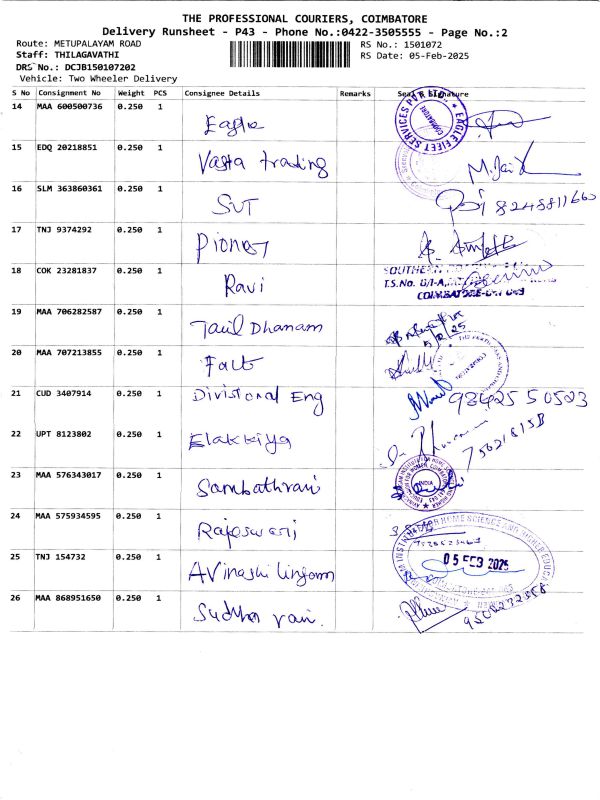 THE PROFESSIONAL COURIERS, COIMBATORE
Delivery Runsheet - P43 - Phone No.:0422-3505555 - Page No.:2
Route: METUPALAYAM ROAD RS No.: 1501072
Staff: THILAGAVATHI RS Date: 05-Feb-2025
DRS No.: DCJB150107202
Vehicle: Two Wheeler Delivery
S No Consignment No Weight PCS Consignee Details Remarks Seal & Signature
14 MAA 600500736 0.250 1 Eagle
EAGLE FLEET SERVICES PVT LTD
COIMBATORE
15 EDQ 20218851 0.250 1 Vasta trading M. Jai
16 SLM 363860361 0.250 1 SVT 8248811660
17 TNJ 9374292 0.250 1 Pioneer
18 COK 23281837 0.250 1 Ravi
SOUTHERN
T.S.No. 8/1-A,
COIMBATORE-641 043
19 MAA 706282587 0.250 1 Tamil Dhanam
5/2/25
20 MAA 707213855 0.250 1 Fact
21 CUD 3407914 0.250 1 Divisional Eng 98425 50523
22 UPT 8123802 0.250 1 Elakkiya
23 MAA 576343017 0.250 1 Sambathrani
INDIA
24 MAA 575934595 0.250 1 Rajeswari
HOME SCIENCE AND HIGHER EDUCATION
25 TNJ 154732 0.250 1 Avinashi lingam
05 FEB 2025
26 MAA 868951650 0.250 1 Sudha rani